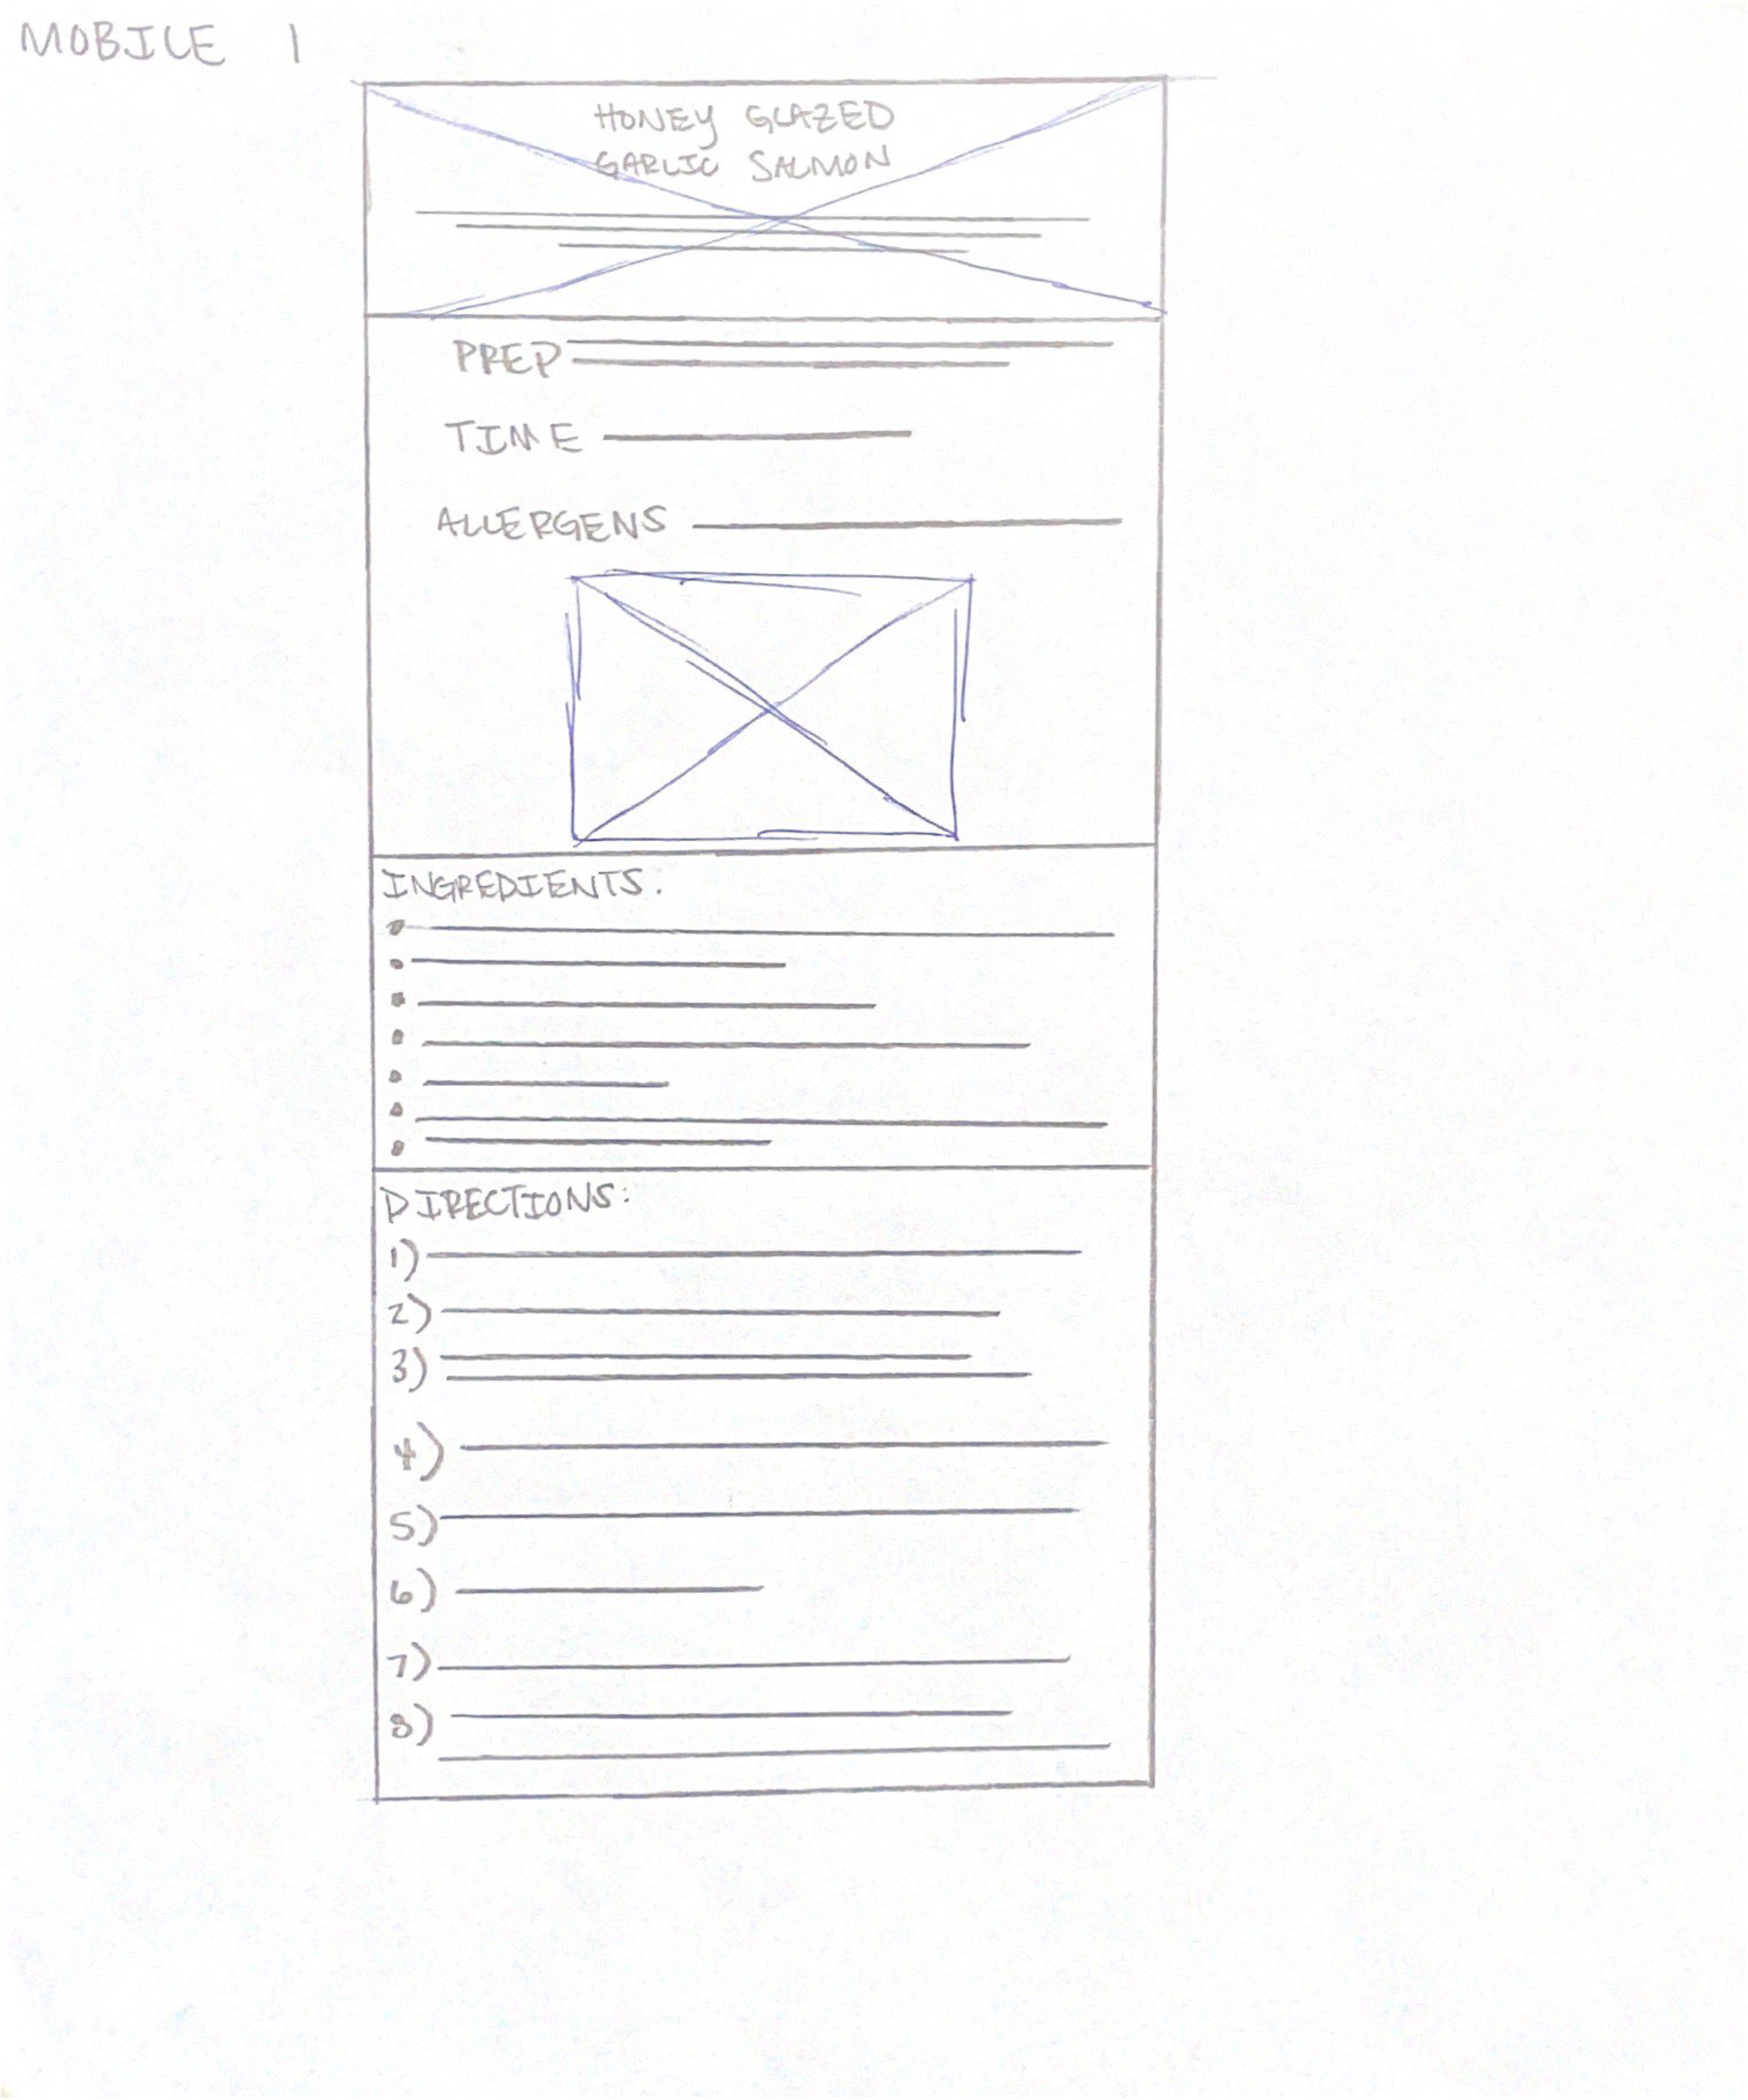 MOBILE 1
HONEY GLAZED
GARLIC SALMON
PREP
TIME
ALLERGENS
INGREDIENTS:
DIRECTIONS:
1)
2)
3)
4)
5)
6)
7)
8)